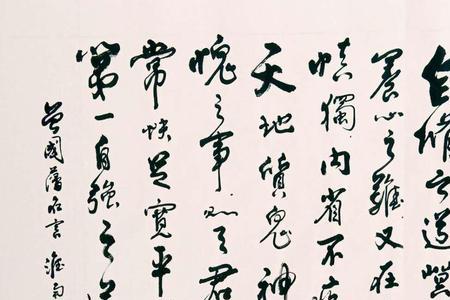 養心之難又在
慎獨内省不疚
天地質鬼神
愧之事則天君
常快足寬平
第一自強之
曾國藩名言